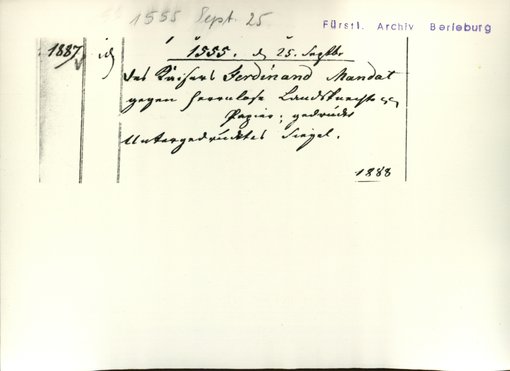 1555 Sept. 25
Fürstl. Archiv Berleburg
1887 id 1555. d 25. Septbr
des Kaisers Ferdinand Mandat
gegen herrnlose Landsknechte
Papier; gedruckt
Untergedrücktes Siegel.
1888